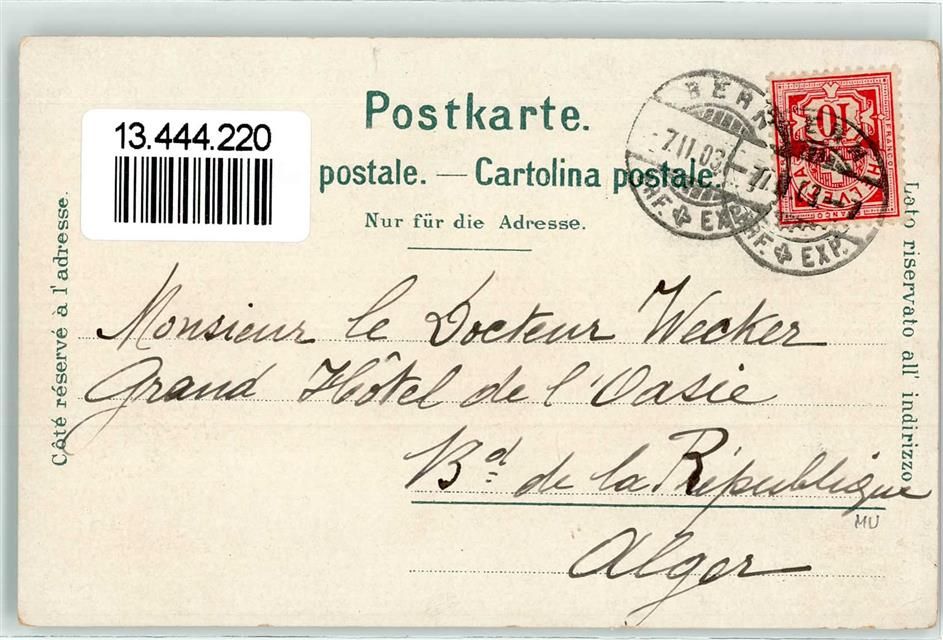 Postkarte.
13.444.220
postale. — Cartolina postale.
Nur für die Adresse.
Côté réservé à l'adresse.
Lato riservato all' indirizzo
BERN
7.II.03
BRF. EXP.
BRF. EXP.
10
FRANCO
HELVETIA
Monsieur le Docteur Wecker
Grand Hôtel de l'Oasie
Bd de la République
MU
Alger